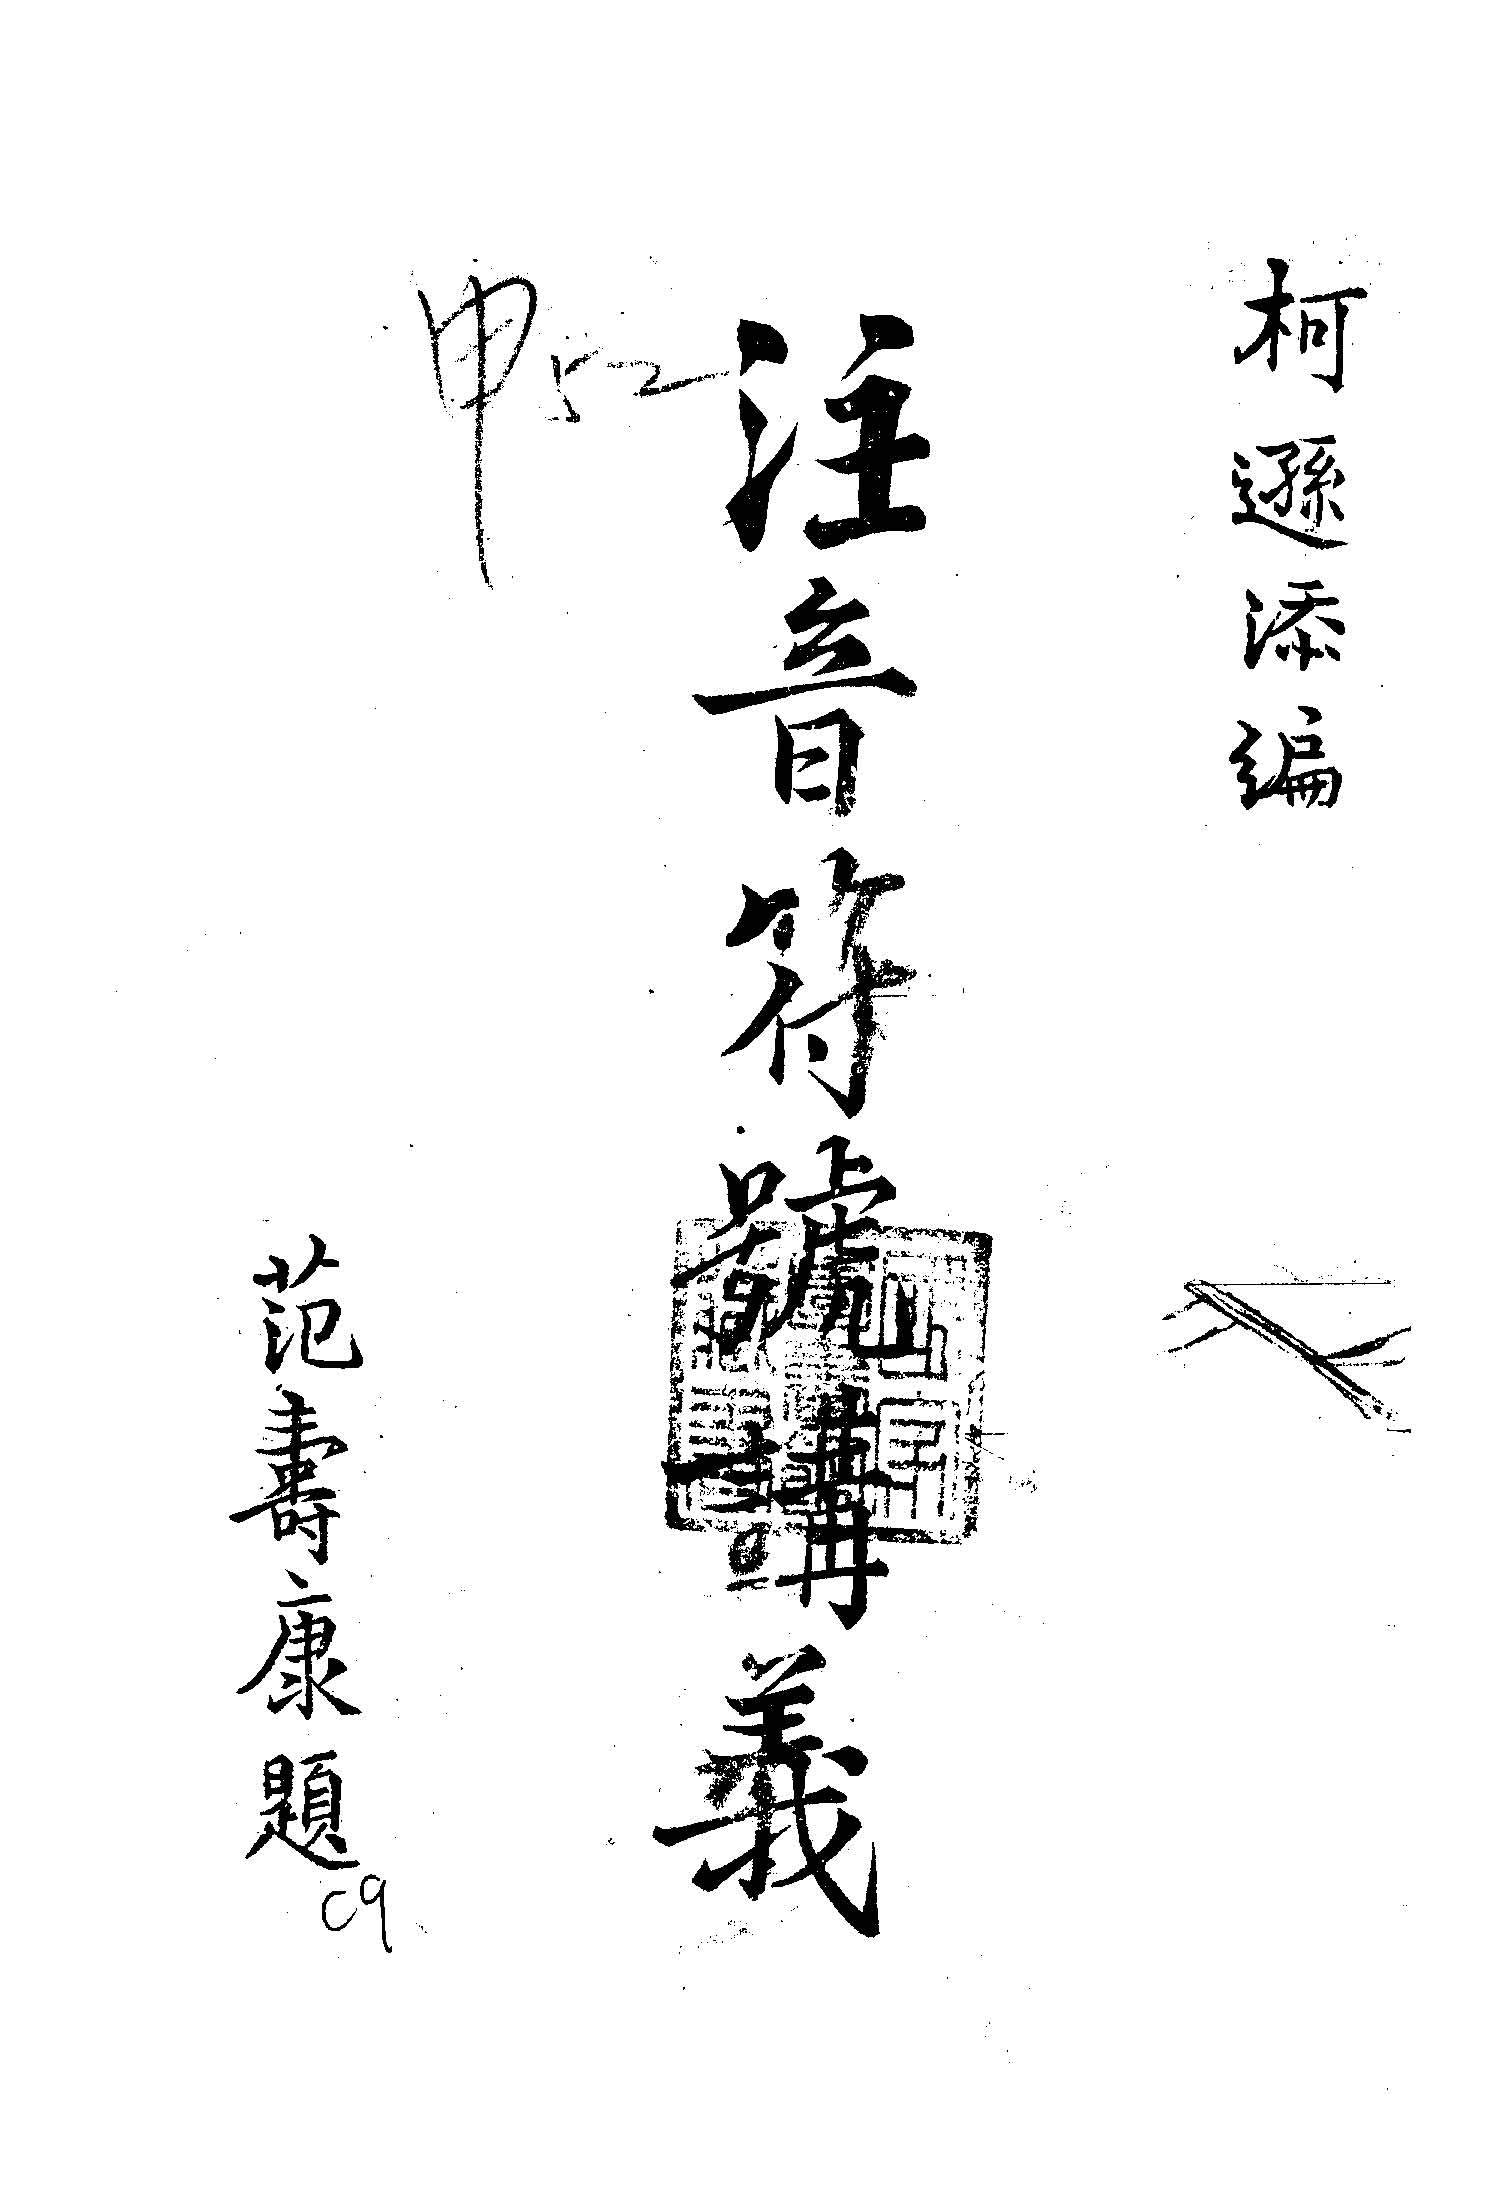 柯遜添編
注音符號講義
申52
范壽康題
C9